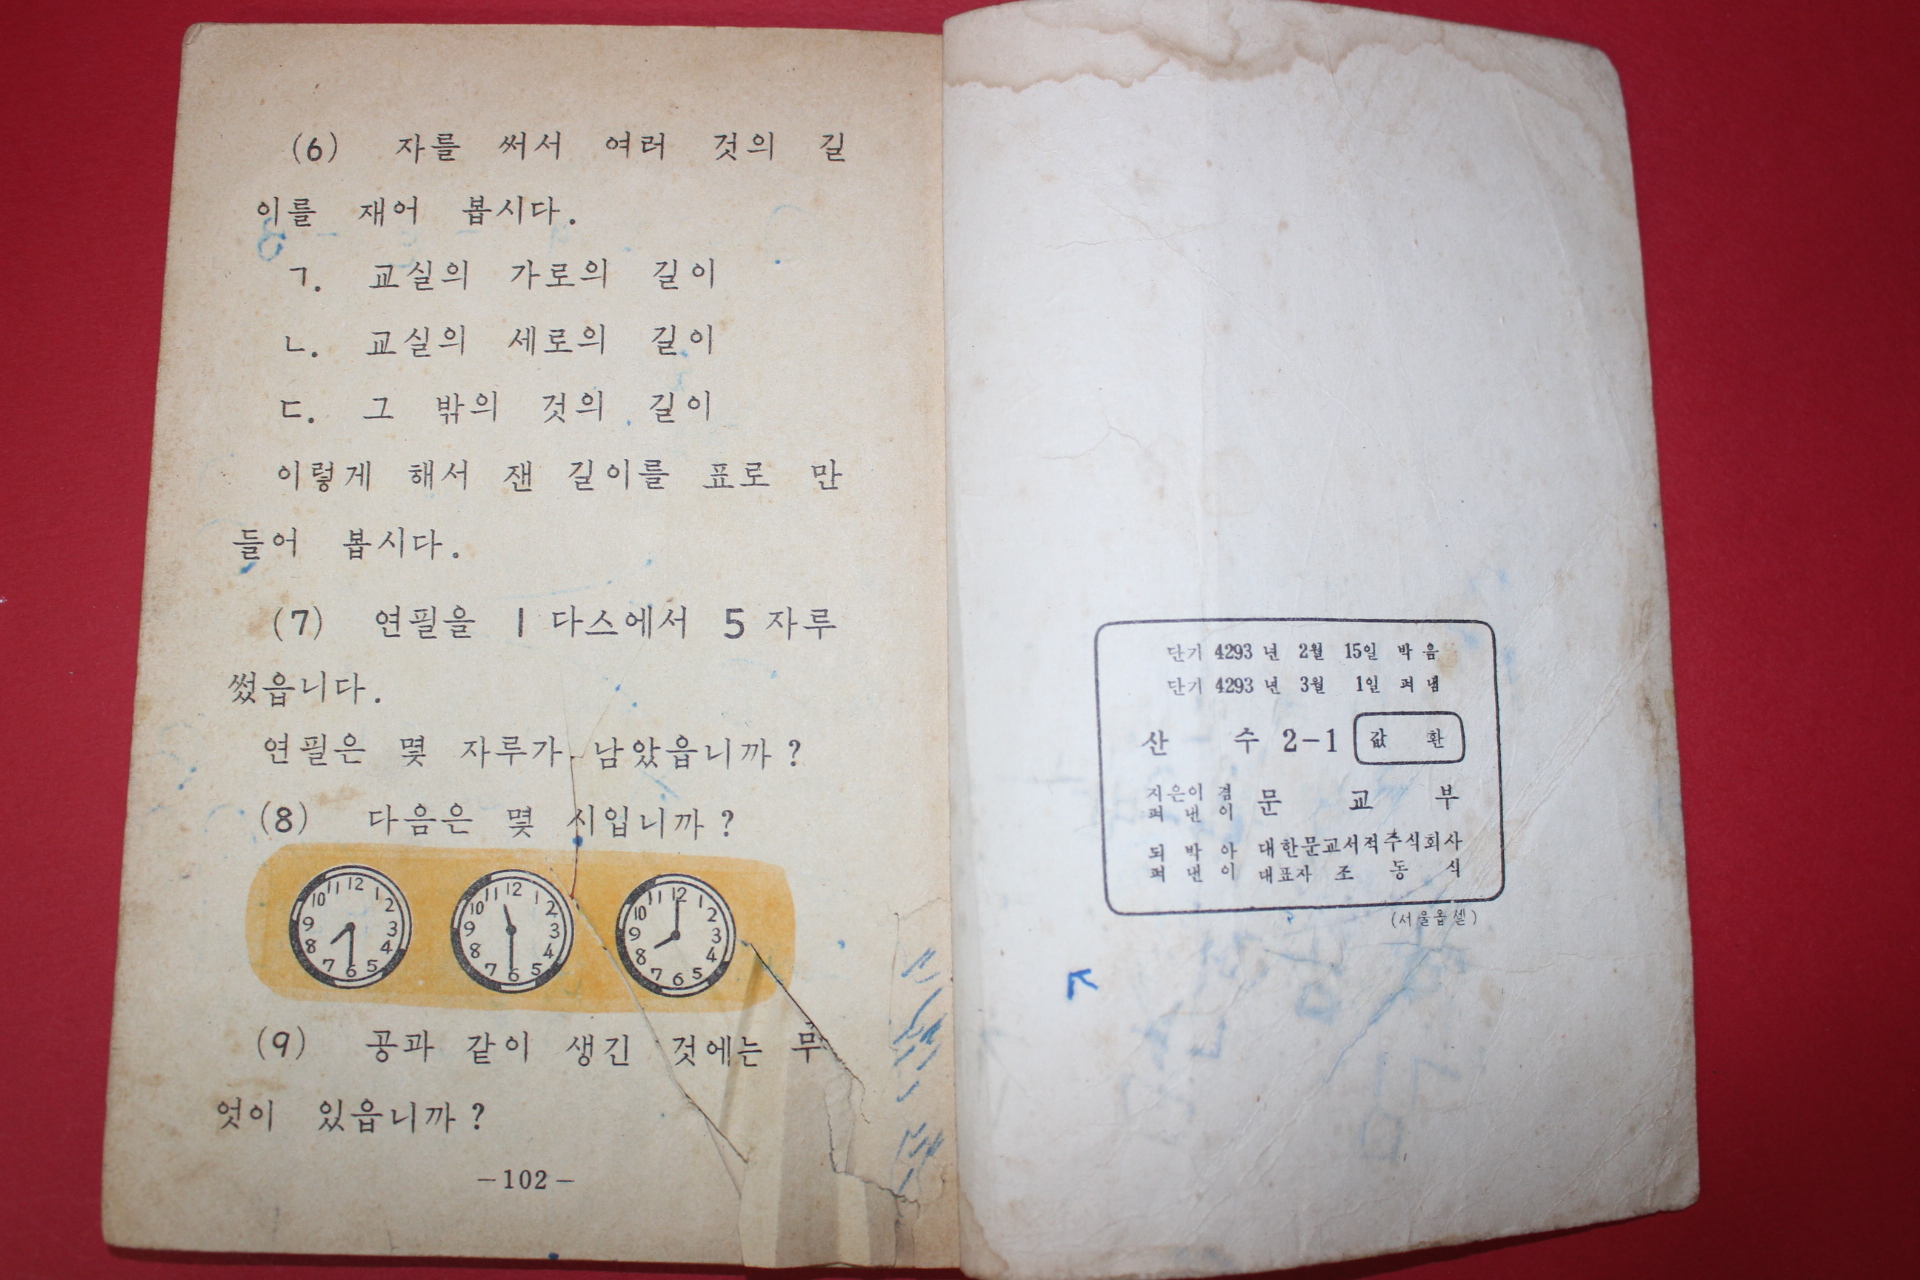 (6) 자를 써서 여러 것의 길
이를 재어 봅시다.
ㄱ. 교실의 가로의 길이
ㄴ. 교실의 세로의 길이
ㄷ. 그 밖의 것의 길이
이렇게 해서 잰 길이를 표로 만
들어 봅시다.
(7) 연필을 1 다스에서 5 자루
썼읍니다.
연필은 몇 자루가 남았읍니까?
(8) 다음은 몇 시입니까?
12 1 2 3 4 5 6 7 8 9 10 11
12 1 2 3 4 5 6 7 8 9 10 11
12 1 2 3 4 5 6 7 8 9 10 11
(9) 공과 같이 생긴 것에는 무
엇이 있읍니까?
-102-
단기 4293 년 2월 15일 박음
단기 4293 년 3월 1일 펴냄
산 수 2-1 값 환
지은이 겸 펴낸이 문교부
되박아 펴낸이 대한문교서적주식회사
대표자 조동식
(서울옵셑)